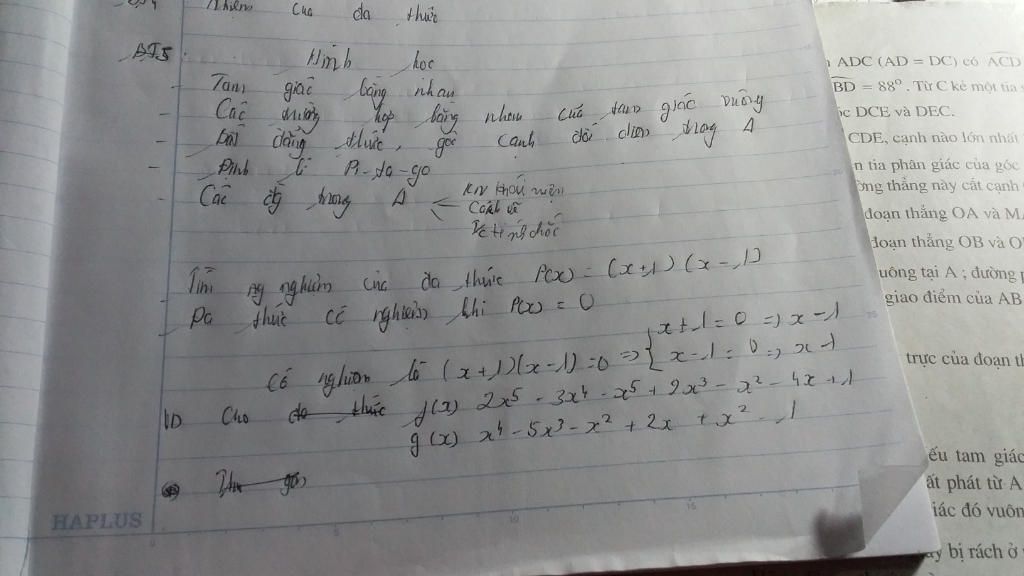 Nhiệm của đa thức
BT5 Hình học
- Tam giác bằng nhau
- Các trường hợp bằng nhau của tam giác vuông
- Bất đẳng thức, góc cạnh đối diện trong Δ
- Định lí Pi-ta-go
- Các đg trong Δ
KN khái niệm
Cách vẽ
T/c tính chất
Tìm ng nghiệm của đa thức P(x) = (x+1)(x-1)
- Đa thức có nghiệm khi P(x) = 0
Có nghiệm là (x+1)(x-1)=0 => { x+1=0 => x-1
x-1=0 => x-1
Cho đa thức f(x) 2x⁵ - 3x⁴ - x⁵ + 2x³ - x² - 4x + 1
g(x) x⁴ - 5x³ - x² + 2x + x² - 1
HAPLUS
0 5 10 15
ADC (AD = DC) có ACD
BD = 88°. Từ C kẻ một tia
óc DCE và DEC.
CDE, cạnh nào lớn nhất
n tia phân giác của góc
ờng thẳng này cắt cạnh
đoạn thẳng OA và MA
đoạn thẳng OB và O
uông tại A ; đường
giao điểm của AB
trực của đoạn th
ếu tam giác
ất phát từ A
iác đó vuôn
ấy bị rách ở